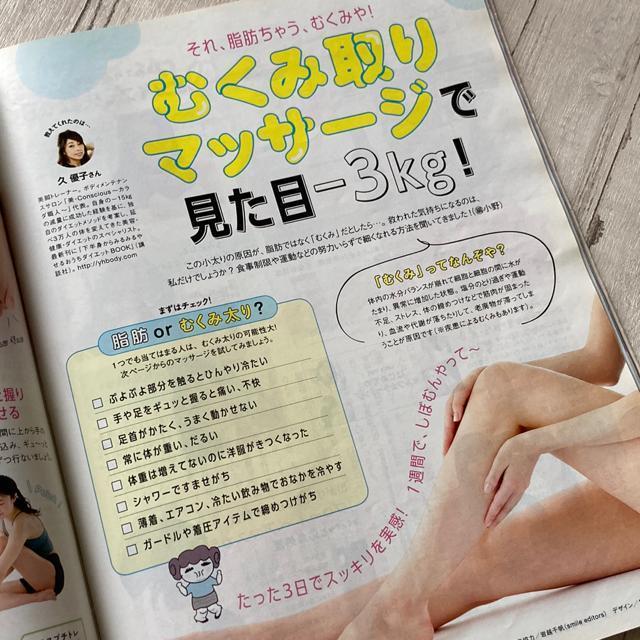 それ、脂肪ちゃう、むくみや!
むくみ取り
マッサージで
見た目-3kg!
教えてくれたのは…
久 優子さん
美脚トレーナー。ボディメンテナン
スサロン「美・Conscious〜カラ
ダ職人〜」代表。自身の−15kg
の減量に成功した経験を基に、独
自のダイエットメソッドを考案し、延
べ3万人の体を変えてきた美容・
健康・ダイエットのスペシャリスト。
最新刊に『下半身からみるみるや
せるおうちダイエットBOOK』(講
談社)。http://yhbody.com
この小太りの原因が、脂肪ではなく「むくみ」だとしたら…。救われた気持ちになるのは、
私だけでしょうか? 食事制限や運動などの努力いらずで細くなれる方法を聞いてきました!(編小野)
「むくみ」ってなんぞや?
体内の水分バランスが崩れて細胞と細胞の間に水が
たまり、異常に増加した状態。塩分のとり過ぎや運動
不足、ストレス、体の締めつけなどで筋肉が固まった
り、血流や代謝が落ちたりして、老廃物が滞ってしま
うことが原因です(※疾患によるむくみもあります)。
まずはチェック!
脂肪 or むくみ太り?
1つでも当てはまる人は、むくみ太りの可能性大!
次ページからのマッサージを試してみましょう。
□ ぷよぷよ部分を触るとひんやり冷たい
□ 手や足をギュッと握ると痛い、不快
□ 足首がかたく、うまく動かせない
□ 常に体が重い、だるい
□ 体重は増えてないのに洋服がきつくなった
□ シャワーですませがち
□ 薄着、エアコン、冷たい飲み物でおなかを冷やす
□ ガードルや着圧アイテムで締めつけがち
1週間で、しぼむんやって〜
たった3日でスッキリを実感!
と握り
せる